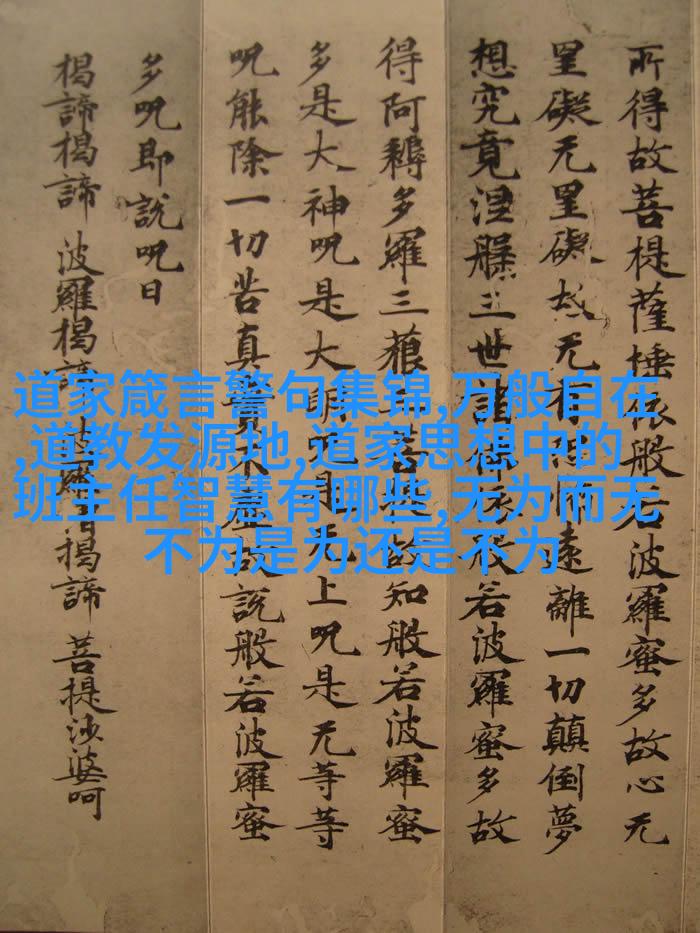 所得故菩提薩埵依般若波羅蜜多故心无
罣礙无罣礙故无有恐怖遠離一切顛倒夢
想究竟涅槃三世諸佛依般若波羅蜜多故
得阿耨多羅三藐三菩提故知般若波羅蜜
多是大神呪是大明呪是无上呪是无等等
呪能除一切苦真實不虛故說般若波羅蜜
多呪即說呪曰
揭諦揭諦 波羅揭諦 波羅僧揭諦 菩提沙婆呵
道家箴言警句集锦,万般自在
,道教发源地,道家思想中的
班主任智慧有哪些,无为而无
不为是为还是不为